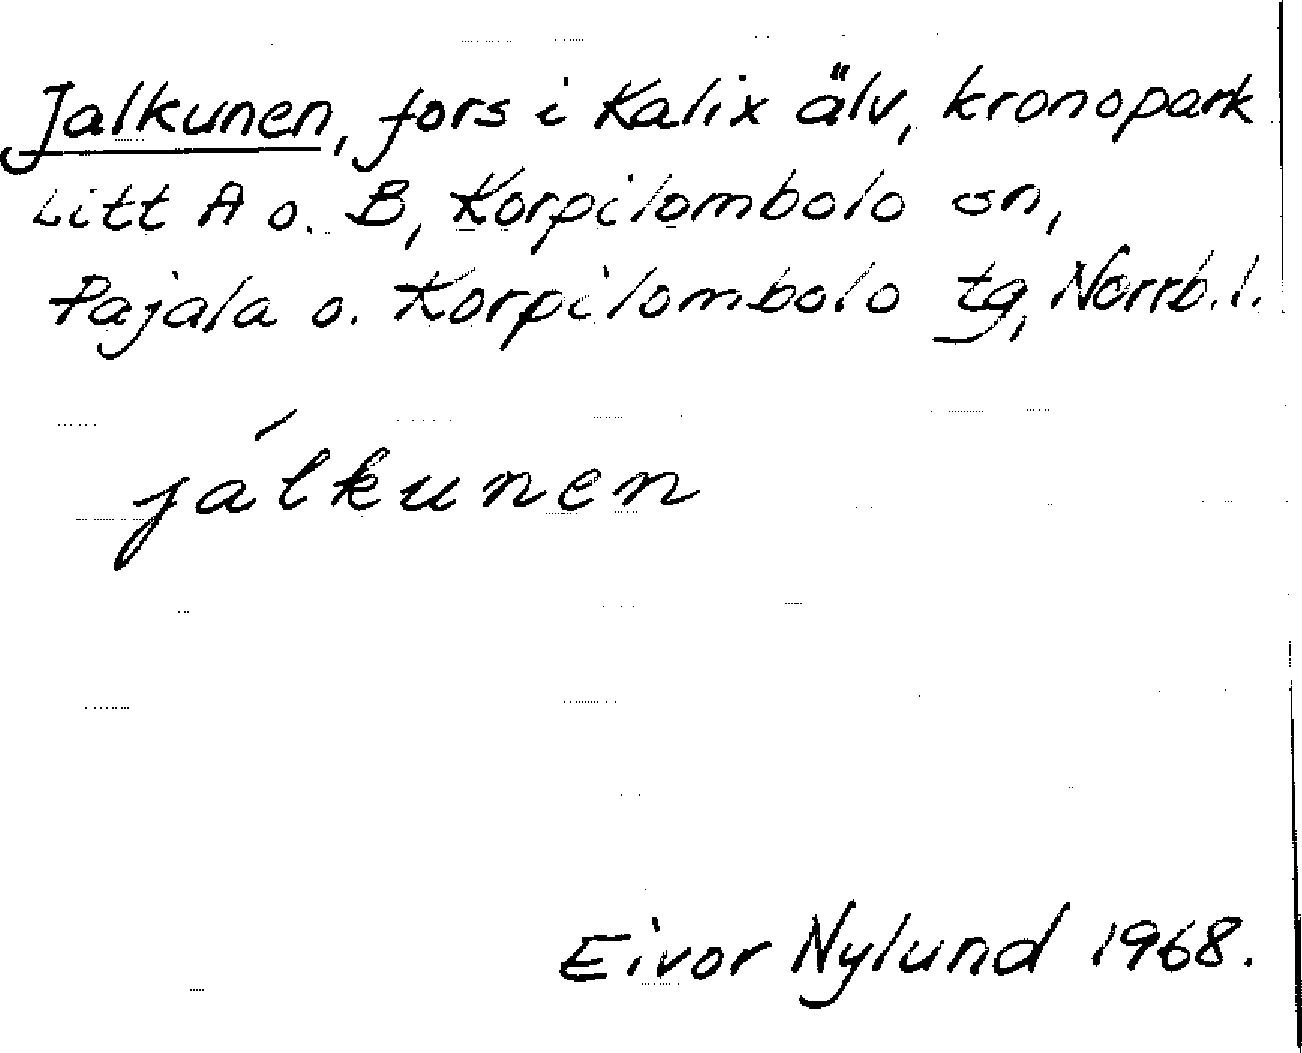 Jalkunen, fors i Kalix älv, kronopark
Litt A o. B, Korpilombolo sn,
Pajala o. Korpilombolo tg, Norrb. l.
jálkunen
Eivor Nylund 1968.